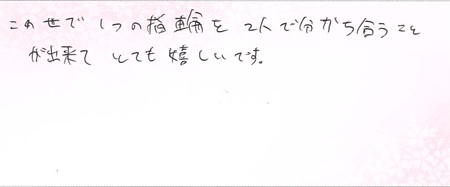 この世で1つの指輪を2人で分かち合うこと
が出来てとても嬉しいです。